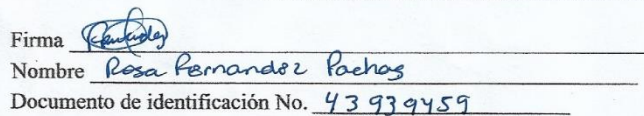 Firma
Nombre Rosa Fernandez Pachas
Documento de identificación No. 43939459